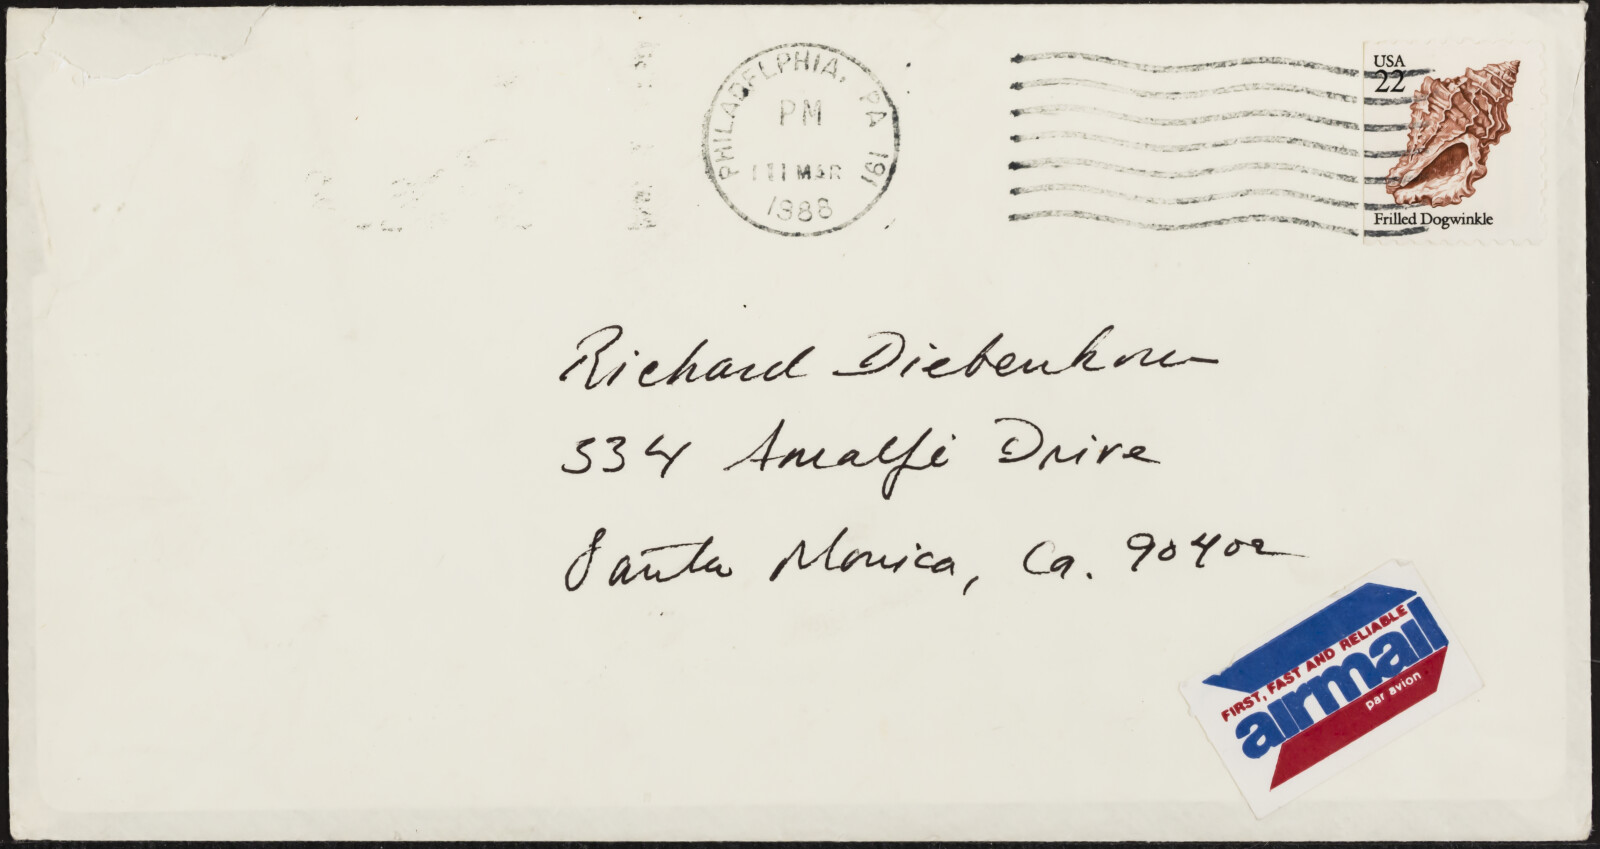 PHILADELPHIA, PA 191
PM
11 MAR
1988
USA
22
Frilled Dogwinkle
Richard Diebenkorn
334 Amalfi Drive
Santa Monica, Ca. 90402
FIRST, FAST AND RELIABLE
airmail
par avion